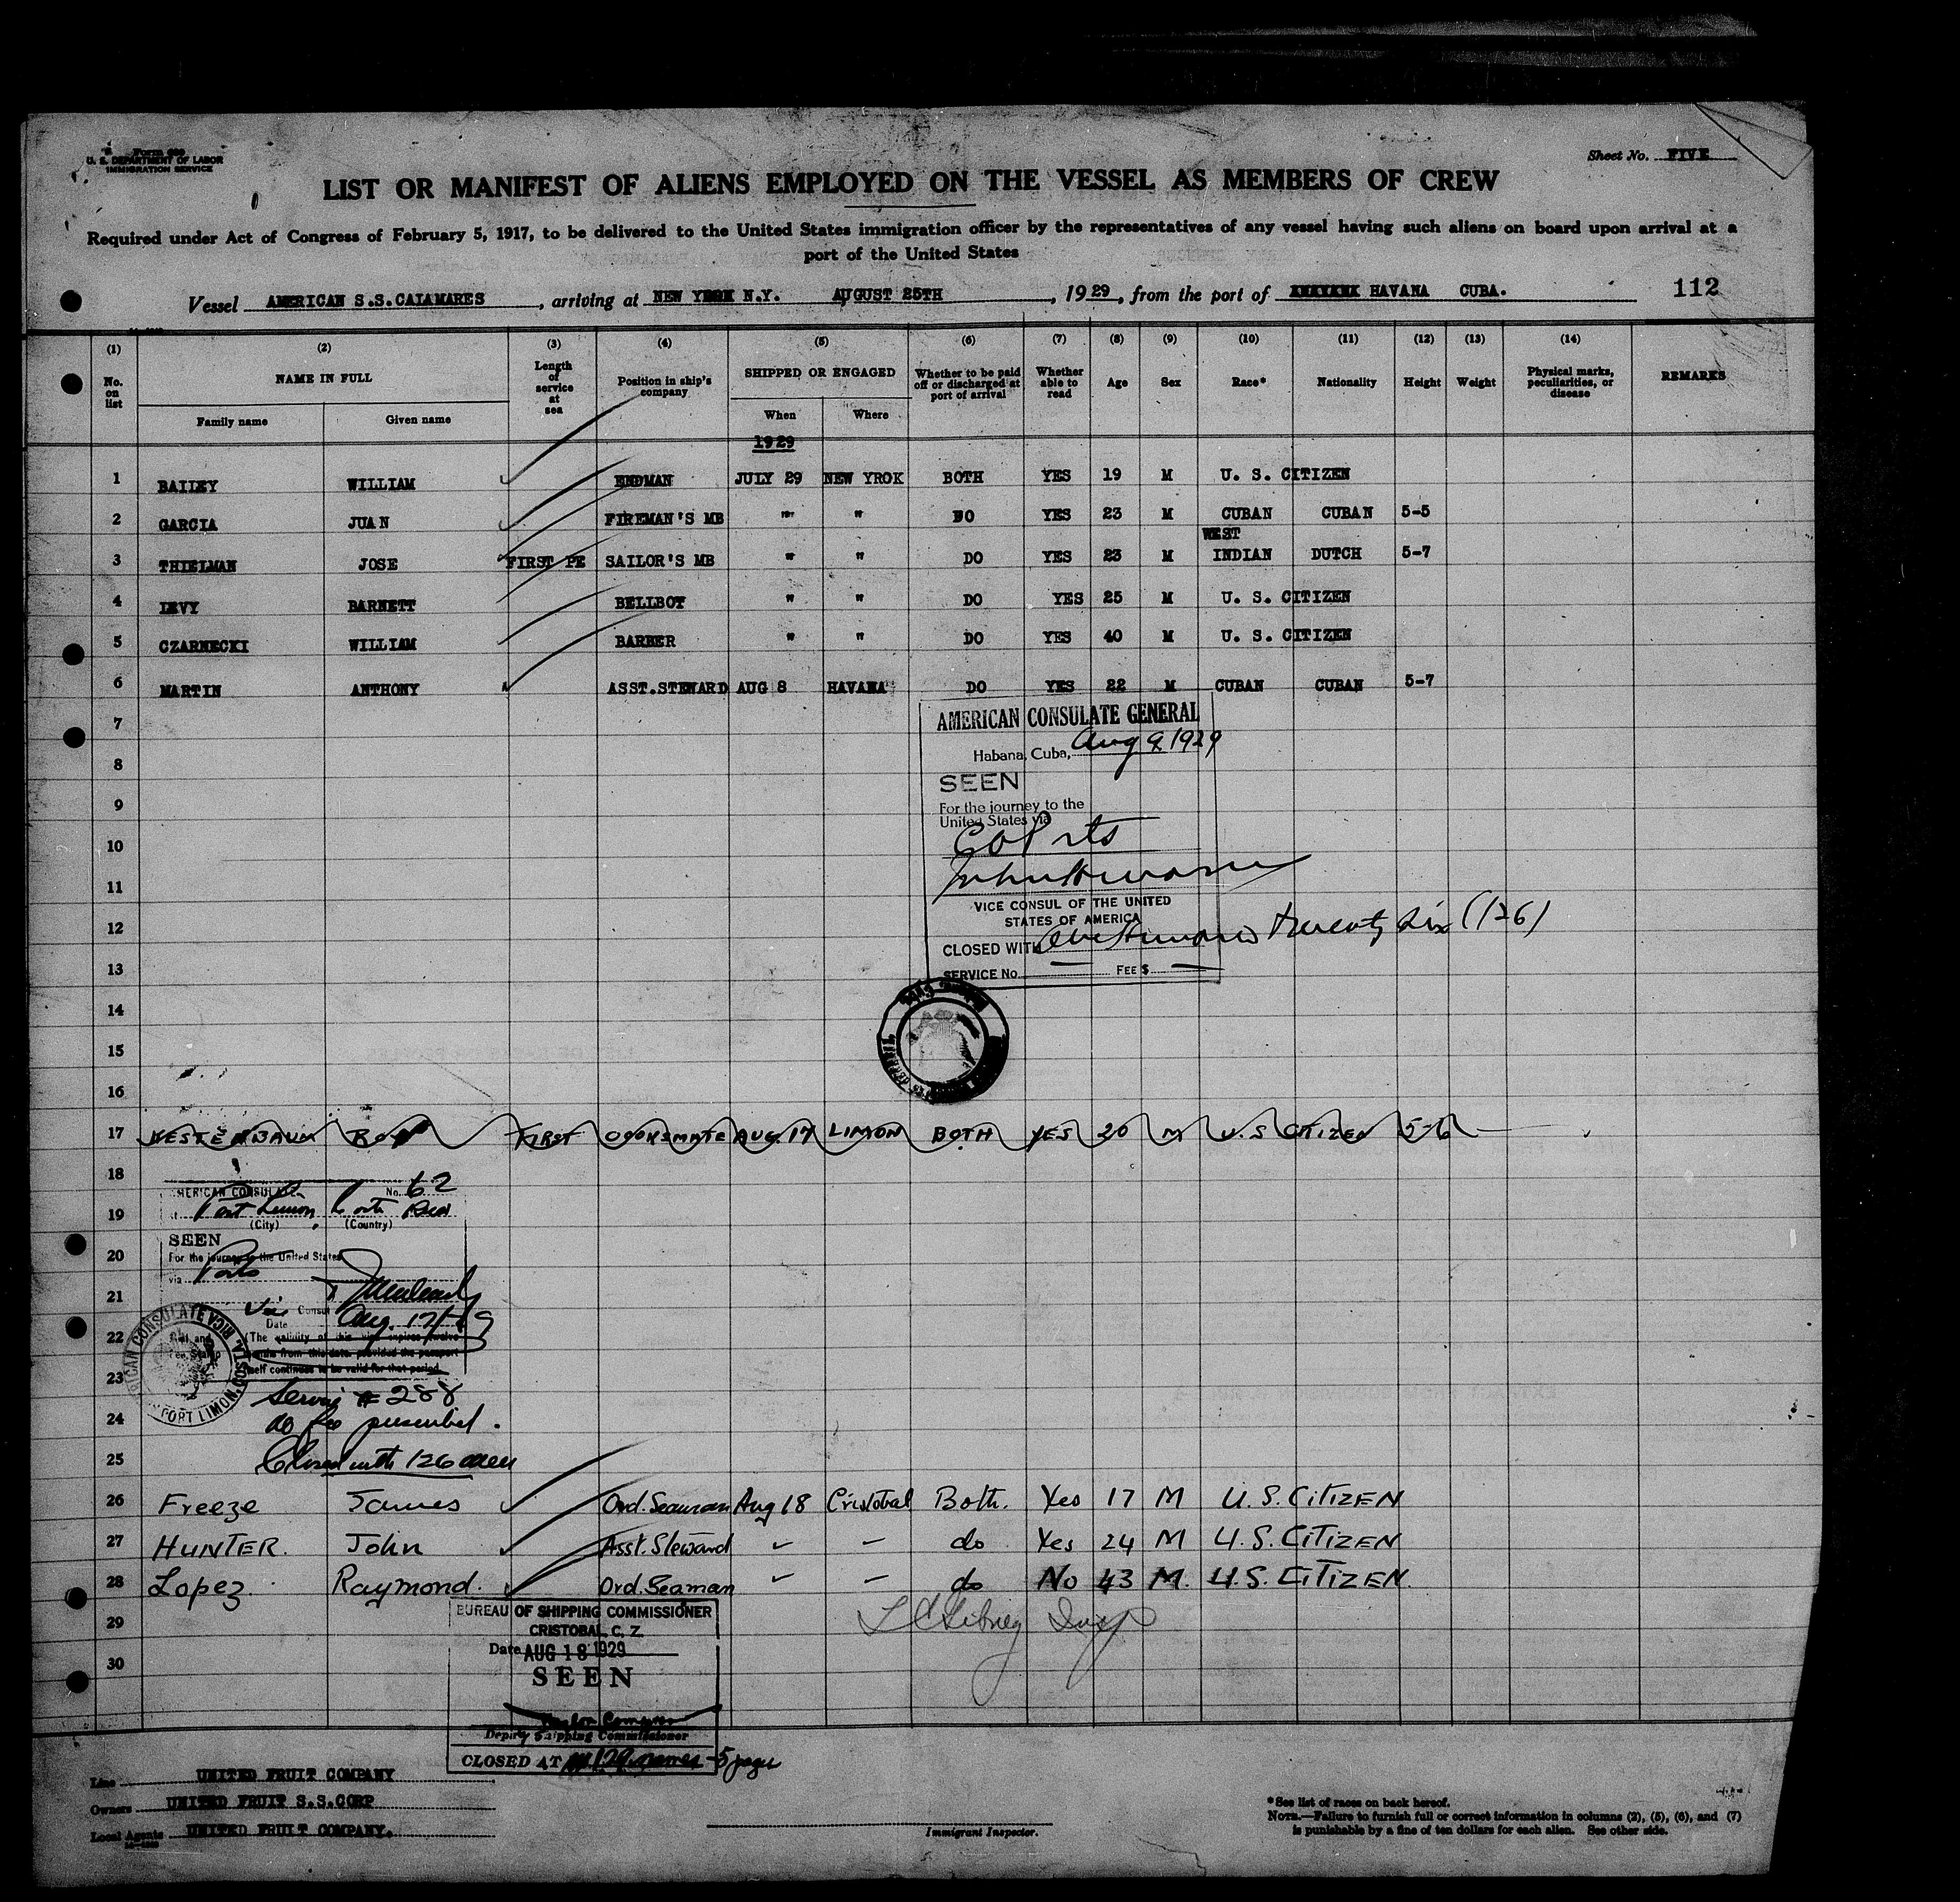 Form 689
U. S. DEPARTMENT OF LABOR
IMMIGRATION SERVICE
Sheet No. FIVE
LIST OR MANIFEST OF ALIENS EMPLOYED ON THE VESSEL AS MEMBERS OF CREW
Required under Act of Congress of February 5, 1917, to be delivered to the United States immigration officer by the representatives of any vessel having such aliens on board upon arrival at a
port of the United States
Vessel AMERICAN S.S.CALAMARES, arriving at NEW YORK N.Y. AUGUST 25TH, 1929, from the port of HAVANA CUBA. 112
(1) (2) (3) (4) (5) (6) (7) (8) (9) (10) (11) (12) (13) (14)
No. on list NAME IN FULL Length of service at sea Position in ship's company SHIPPED OR ENGAGED Whether to be paid off or discharged at port of arrival Whether able to read Age Sex Race* Nationality Height Weight Physical marks, peculiarities, or disease REMARKS
Family name Given name When Where
1929
1 BAILEY WILLIAM ENDMAN JULY 29 NEW YROK BOTH YES 19 M U. S. CITIZEN
2 GARCIA JUAN FIREMAN'S MB " " DO YES 23 M CUBAN CUBAN 5-5
3 THIELMAN JOSE FIRST PE SAILOR'S MB " " DO YES 23 M WEST INDIAN DUTCH 5-7
4 LEVY BARNETT BELLBOY " " DO YES 25 M U. S. CITIZEN
5 CZARNECKI WILLIAM BARBER " " DO YES 40 M U. S. CITIZEN
6 MARTIN ANTHONY ASST.STEWARD AUG 8 HAVANA DO YES 22 M CUBAN CUBAN 5-7
7
AMERICAN CONSULATE GENERAL
Habana, Cuba, Aug 9 1929
8
SEEN
9
For the journey to the
United States via
10
11
VICE CONSUL OF THE UNITED
STATES OF AMERICA
12
CLOSED WITH twenty six (126)
13
SERVICE No. — FEE $ —
14
15
16
17 WESTENBAUM ROY FIRST COOKSMATE AUG. 17 LIMON BOTH YES 20 M U.S CITIZEN 5-6
18
AMERICAN CONSULATE No. 62
19
at Port Limon, Costa Rica
(City) (Country)
SEEN
20
For the journey to the United States
via Ports
21
Vice Consul
Date Aug. 17/29
22
(The validity of this visa expires twelve
months from this date provided the passport
itself continues to be valid for that period.
AMERICAN CONSULATE PORT LIMON, COSTA RICA
23
Service # 288
24
no fee prescribed.
25
Closed with 126 men
26 Freeze James Ord. Seaman Aug 18 Cristobal Both. Yes 17 M U.S. CITIZEN
27 HUNTER. John Asst. Steward do Yes 24 M U.S. CITIZEN
28 Lopez. Raymond. Ord. Seaman do No 43 M. U.S. CITIZEN.
29
BUREAU OF SHIPPING COMMISSIONER
CRISTOBAL, C. Z.
Date AUG 18 1929
30
SEEN
Deputy Shipping Commissioner
CLOSED AT 129 names - 5 pages
Line UNITED FRUIT COMPANY
Owners UNITED FRUIT S.S.CORP
Local Agents UNITED FRUIT COMPANY.
Immigrant Inspector.
*See list of races on back hereof.
NOTE.—Failure to furnish full or correct information in columns (2), (5), (6), and (7)
is punishable by a fine of ten dollars for each alien. See other side.